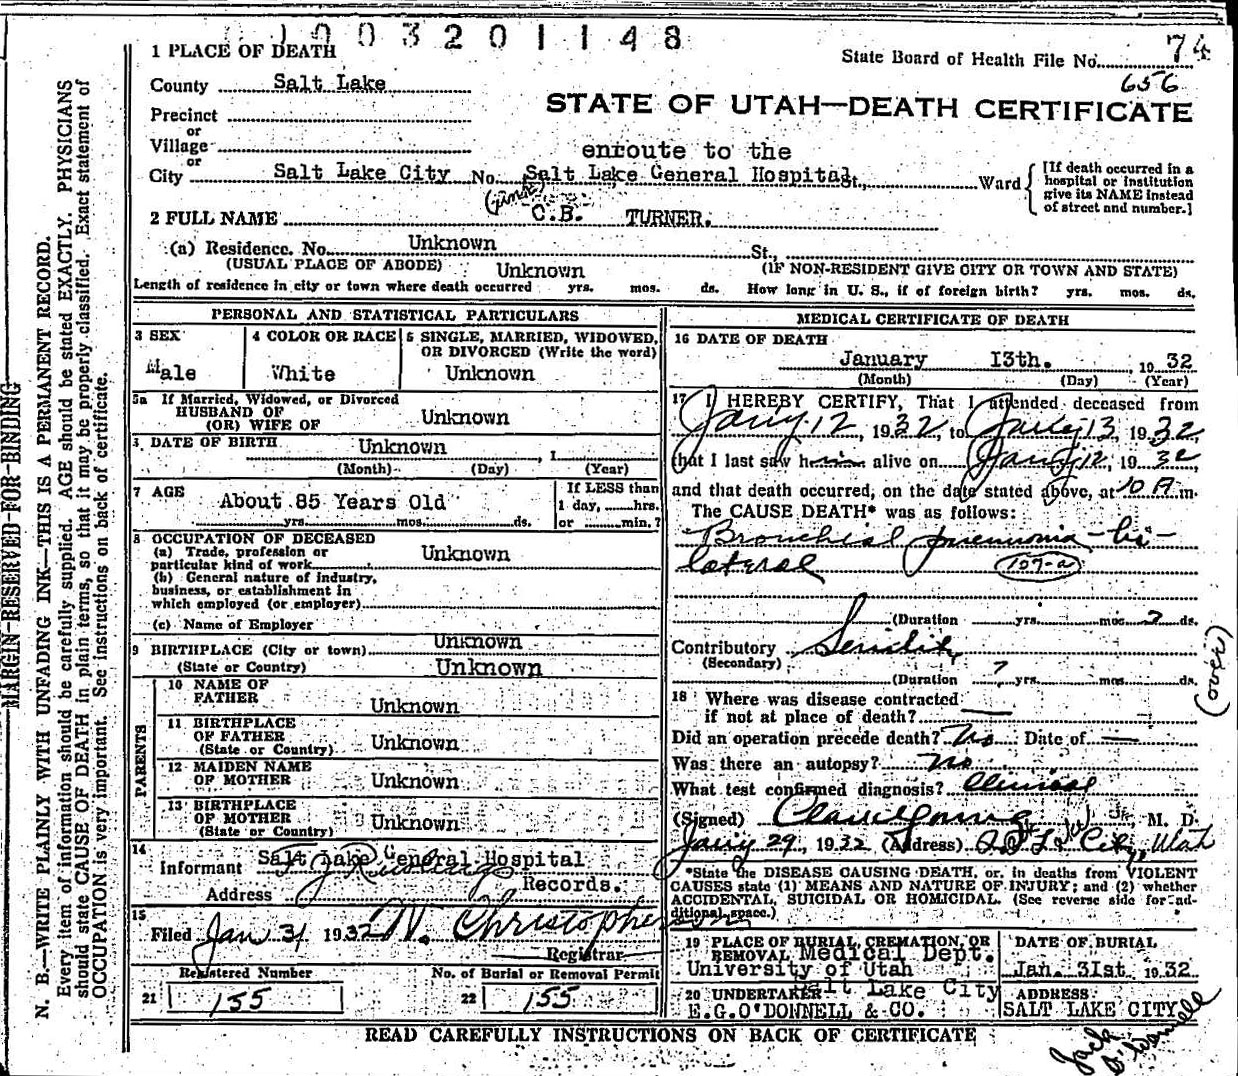 1003201148
1 PLACE OF DEATH
State Board of Health File No. 74
656
County Salt Lake
STATE OF UTAH—DEATH CERTIFICATE
Precinct
or
Village
or
enroute to the
City Salt Lake City No. Salt Lake General Hospital St., Ward
[If death occurred in a hospital or institution give its NAME instead of street and number.]
2 FULL NAME C.B. TURNER.
(a) Residence. No. Unknown St.,
(USUAL PLACE OF ABODE) (IF NON-RESIDENT GIVE CITY OR TOWN AND STATE)
Unknown
Length of residence in city or town where death occurred yrs. mos. ds. How long in U. S., if of foreign birth? yrs. mos. ds.
PERSONAL AND STATISTICAL PARTICULARS
3 SEX
Male
4 COLOR OR RACE
White
5 SINGLE, MARRIED, WIDOWED,
OR DIVORCED (Write the word)
Unknown
5a If Married, Widowed, or Divorced
HUSBAND OF
(OR) WIFE OF Unknown
DATE OF BIRTH Unknown , 1
(Month) (Day) (Year)
7 AGE About 85 Years Old
yrs. mos. ds.
If LESS than
1 day, hrs.
or min.?
8 OCCUPATION OF DECEASED
(a) Trade, profession or
particular kind of work Unknown
(b) General nature of industry,
business, or establishment in
which employed (or employer)
(c) Name of Employer
9 BIRTHPLACE (City or town) Unknown
(State or Country) Unknown
PARENTS
10 NAME OF
FATHER Unknown
11 BIRTHPLACE
OF FATHER
(State or Country) Unknown
12 MAIDEN NAME
OF MOTHER Unknown
13 BIRTHPLACE
OF MOTHER
(State or Country) Unknown
14
Informant Salt Lake General Hospital
Address Records.
15
Filed Jan 31 1932 N. Christopherson
Registrar
Registered Number
21 155
No. of Burial or Removal Permit
22 155
MEDICAL CERTIFICATE OF DEATH
16 DATE OF DEATH
January 13th. , 1932
(Month) (Day) (Year)
17 I HEREBY CERTIFY, That I attended deceased from
Jany 12, 1932, to Jany 13, 1932,
that I last saw him alive on Jany 12, 1932
and that death occurred, on the date stated above, at 10 A m.
The CAUSE DEATH* was as follows:
Bronchial pneumonia - bi-
lateral 107-a
(Duration yrs. mos. ? ds.
Contributory Senility
(Secondary)
(Duration ? yrs. mos. ds.
(over)
18 Where was disease contracted
if not at place of death? —
Did an operation precede death? No Date of —
Was there an autopsy? no
What test confirmed diagnosis? Clinical
(Signed) M. D.
Jany 29, 1932 (Address) City, Utah
*State the DISEASE CAUSING DEATH, or, in deaths from VIOLENT
CAUSES state (1) MEANS AND NATURE OF INJURY; and (2) whether
ACCIDENTAL, SUICIDAL OR HOMICIDAL. (See reverse side for ad-
ditional space.)
19 PLACE OF BURIAL, CREMATION, OR
REMOVAL Medical Dept.
University of Utah
Salt Lake City
DATE OF BURIAL
Jan. 31st 1932
20 UNDERTAKER
E.G. O'DONNELL & CO.
ADDRESS
SALT LAKE CITY
Jack
O'Donnell
READ CAREFULLY INSTRUCTIONS ON BACK OF CERTIFICATE
MARGIN RESERVED FOR BINDING
N. B.—WRITE PLAINLY WITH UNFADING INK—THIS IS A PERMANENT RECORD.
Every item of information should be carefully supplied. AGE should be stated EXACTLY. PHYSICIANS
should state CAUSE OF DEATH in plain terms, so that it may be properly classified. Exact statement of
OCCUPATION is very important. See instructions on back of certificate.